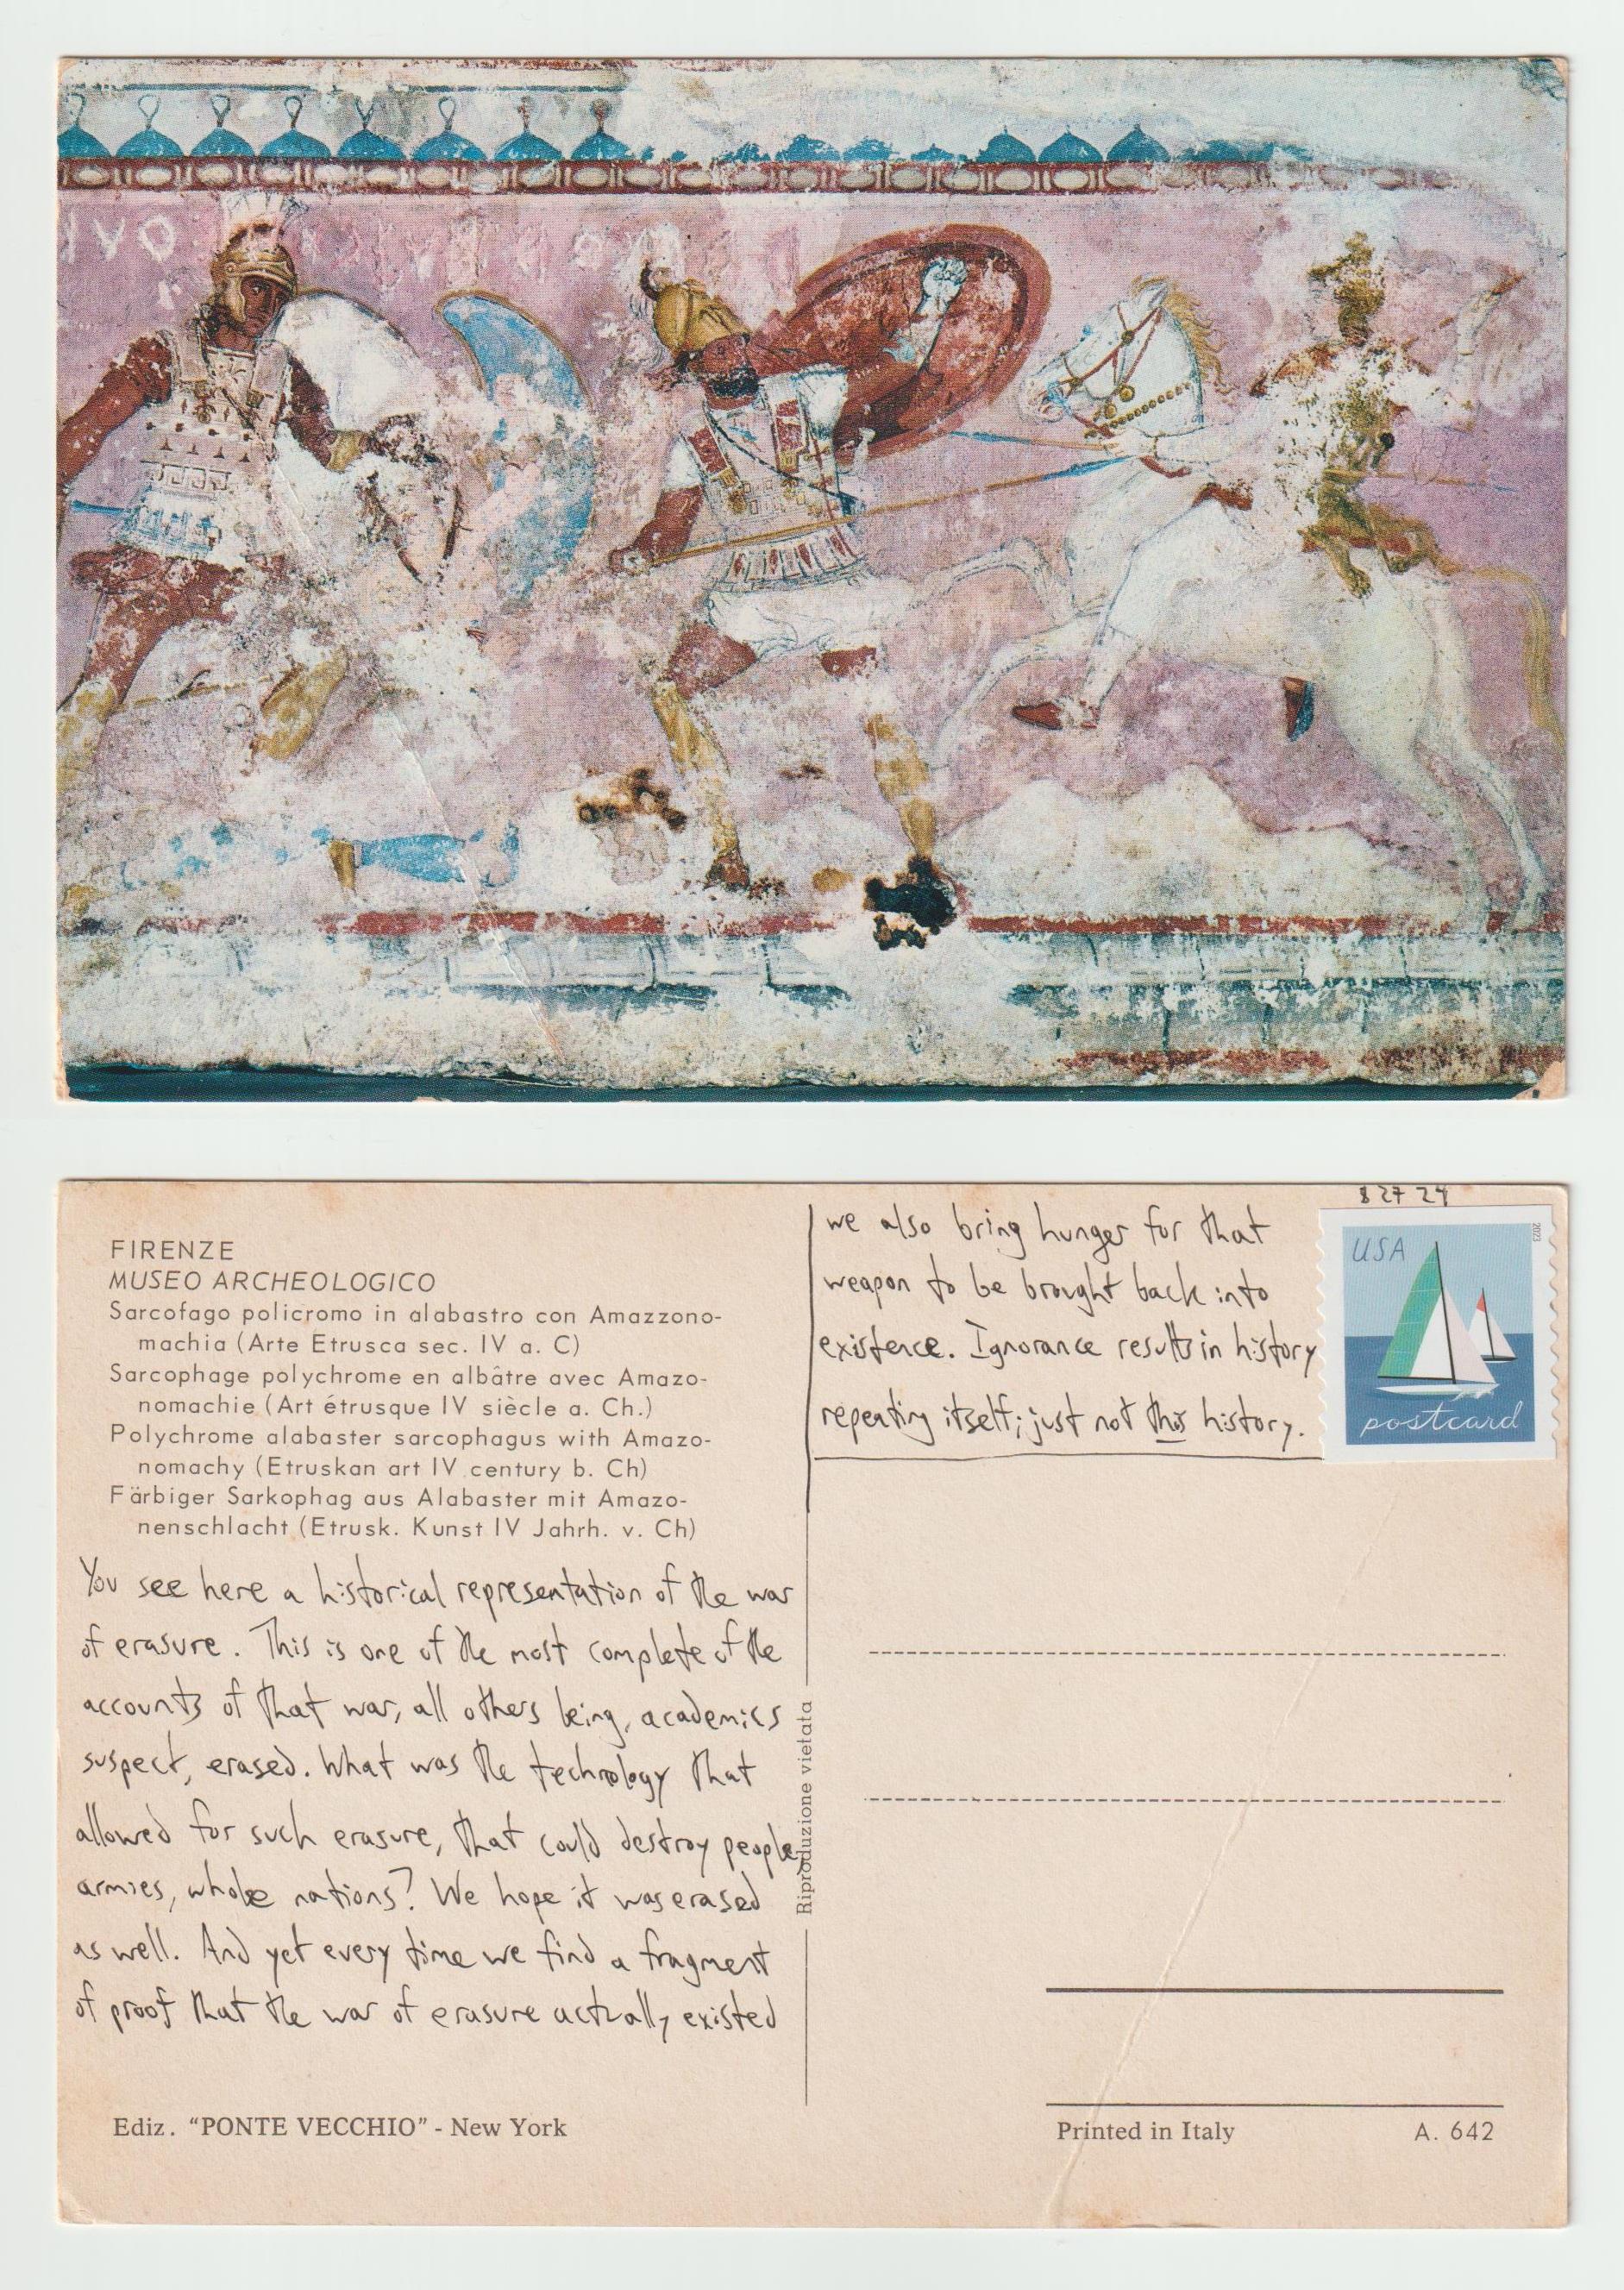 FIRENZE
MUSEO ARCHEOLOGICO
Sarcofago policromo in alabastro con Amazzono-
machia (Arte Etrusca sec. IV a. C)
Sarcophage polychrome en albâtre avec Amazo-
nomachie (Art étrusque IV siècle a. Ch.)
Polychrome alabaster sarcophagus with Amazo-
nomachy (Etruskan art IV century b. Ch)
Färbiger Sarkophag aus Alabaster mit Amazo-
nenschlacht (Etrusk. Kunst IV Jahrh. v. Ch)
You see here a historical representation of the war
of erasure. This is one of the most complete of the
accounts of that war, all others being, academics
suspect, erased. What was the technology that
allowed for such erasure, that could destroy people,
armies, whole nations? We hope it was erased
as well. And yet every time we find a fragment
of proof that the war of erasure actually existed
Ediz. “PONTE VECCHIO” - New York
Riproduzione vietata
we also bring hunger for that
weapon to be brought back into
existence. Ignorance results in history
repeating itself; just not this history.
8 27 24
USA
2023
postcard
Printed in Italy
A. 642